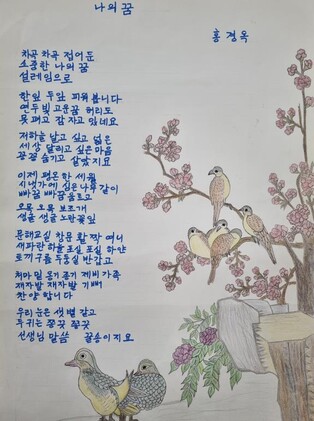 나의 꿈
홍 경옥
차곡 차곡 접어 둔
소중한 나의 꿈
설레임으로
한잎 두잎 피워봅니다
연두빛 고운꿈 허리도
못 펴고 잠 자고 있네요
저하늘 날고 싶고 넓은
세상 달리고 싶은마음
꽁꽁 숨기고 살았지요
이제 평온한 세월
시냇가에 심은 나무 같이
빠꼼 빠꼼 움트고
오목 오목 보조개
생글 생글 노란꽃잎
문해교실 창문 활짝 여니
새파란 하늘 포실 포실 하얀
토끼 구름 두둥실 반갑고
처마 밑 옹기 종기 제비 가족
재자발 재자발 기뻐
찬양합니다
우리 눈은 샛별 같고
두귀는 쫑긋 쫑긋
선생님 말씀 꿀송이지요